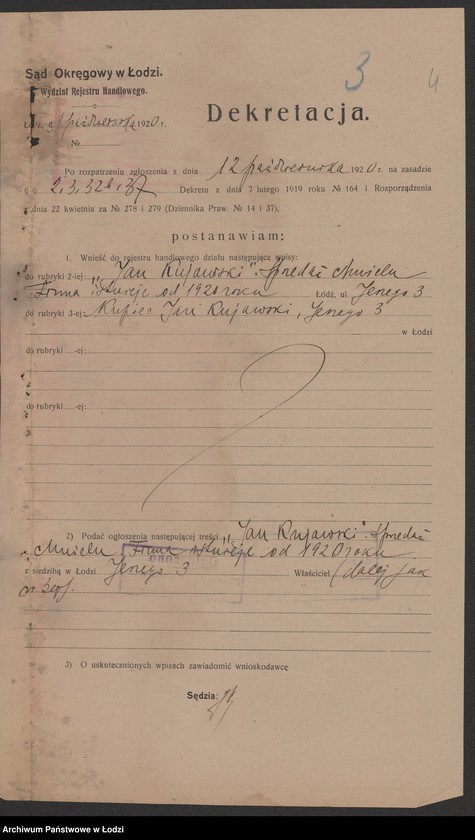 3
4
Sąd Okręgowy w Łodzi.
Wydział Rejestru Handlowego.
Dekretacja.
Łódź, d. października 1920 r.
№
Po rozpatrzeniu zgłoszenia z dnia 12 października 1920 r. na zasadzie
2, 3, 32 i 37 Dekretu z dnia 7 lutego 1919 roku № 164 i Rozporządzenia
z dnia 22 kwietnia za № 278 i 279 (Dziennika Praw. № 14 i 37),
postanawiam:
1. Wnieść do rejestru handlowego działu następujące wpisy:
do rubryki 2-iej: „Jan Rujawski". Sprzedaż chmielu
Firma istnieje od 1920 roku Łódź, ul Jenego 3
do rubryki 3-ej: Kupiec Jan Rujawski, Jenego 3
w Łodzi
do rubryki -ej:
do rubryki -ej:
2) Podać ogłoszenia następującej treści „Jan Rujawski". Sprzedaż
chmielu, Firma istnieje od 1920 roku
z siedzibą w Łodzi Jenego 3 Właściciel (dalej jak
w
3) O uskutecznionych wpisach zawiadomić wnioskodawcę
Sędzia:
Archiwum Państwowe w Łodzi